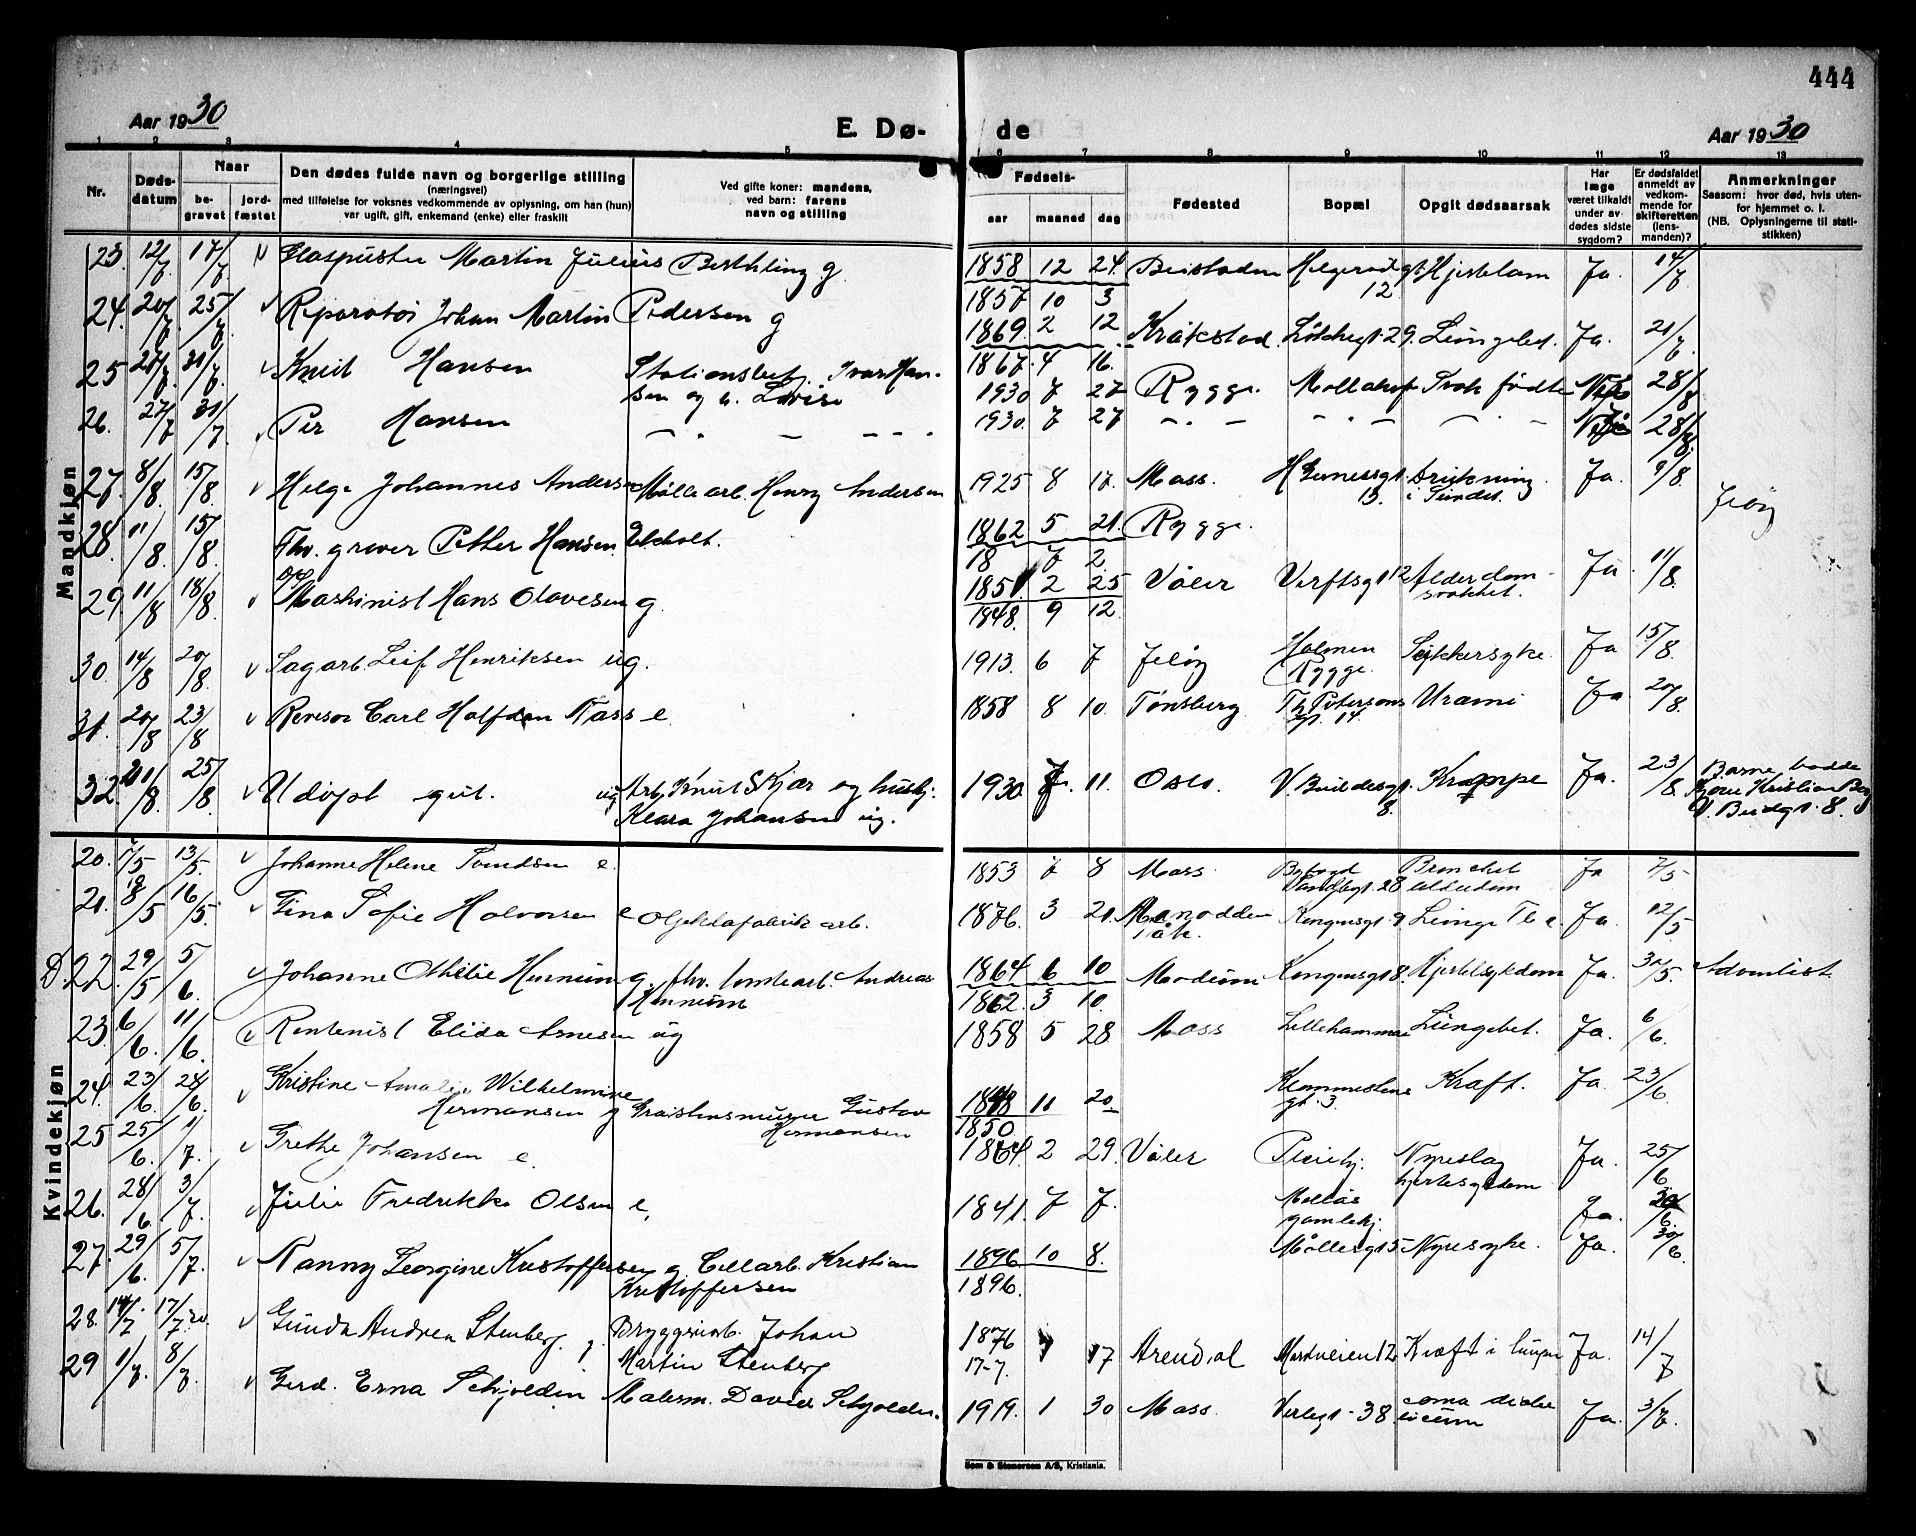 444
Aar 1930
E. Dø-
de
Aar 1930
1 2 3 4 5 6 7 8 9 10 11 12 13
Nr.
Døds-
datum
Naar
be-
gravet
jord-
fæstet
Den dødes fulde navn og borgerlige stilling
(næringsvei)
med tilføielse for voksnes vedkommende av oplysning, om han (hun)
var ugift, gift, enkemand (enke) eller fraskilt
Ved gifte koner: mandens,
ved barn: farens
navn og stilling
Fødsels-
aar maaned dag
Fødested
Bopæl
Opgit dødsaarsak
Har
læge
været tilkaldt
under av-
dødes sidste
sygdom?
Er dødsfaldet
anmeldt av
vedkom-
mende for
skifteretten
(lens-
manden)?
Anmerkninger
Saasom: hvor død, hvis uten-
for hjemmet o. l.
(NB. Oplysningerne til stati-
stikken)
Mandkjøn
23. 12/7 17/7 v Glaspuster Martin Julius Berthling g. 1858 12 24. Beistaden 12 Hjertelam Ja. 14/7
1857 10 3
24. 20/7 25/7 v Reparatør Johan Martin Pedersen g 1869. 2 12 Kråkstad 29. Lungebet. Ja. 21/7
1867. 4 16.
25 27/7 31/7 v Knut Hansen Stationsbet. Ivar Han-
sen og h. Lovise 1930 7 27 Rygge. Svak født 28/7
26. 27/7 31/7 v Per Hansen 1930. 7 27 28/7
27. 8/8 15/8 v Helge Johannes Andersen Møllearb. Henry Andersen 1925 8 17. Moss. 13. Drukning
i Sundet. Ja. 9/8 Jeløy
28. 11/8 15/8 Fhv. graver Petter Hansen Ekeholt. 1862 5 21. Rygge.
18 7 2.
29 11/8 18/8 v Maskinist Hans Olavesen g. 1851 2 25 Våler Verftsgt 12 Alderdom-
svakhet. Ja 11/8.
1848. 9 12.
30. 14/8 20/8. v Sagarb. Leif Henriksen ug. 1913. 6 7 Jeløy Holmen
Rygge. Sukkersyke. Ja 15/8.
31. 20/8 23/8 v Revisor Carl Halfdan Næss e. 1858 8 10. Tønsberg Th. Petersons
gt. 14 Urämi Ja 20/8.
32. 21/8. 25/8 v Udøpt gut. Arb. Knut Skjær og hushj.
Klara Johansen ug. 1930 7. 11. Oslo. 8. Krampe Ja. 23/8
V. Budgt. 8.
Kvindekjøn
20. 7/5 13/5. v Johanne Helene e. 1853 7 8 Moss Bygård
28 Bronchit
alderdom Ja 7/5
21. 8/5 16/5. v Gina Sofie Halvorsen e Oljeklæfabrik arb. 1876. 3 20. Kongensgt. 9 Lunge Tb c Ja. 12/5.
D. 22. 29/5 5/6. v Johanne Othilie Hennum g. fhv. tomtearb. Andreas
Hennum 1864 6 10 Modum Kongensgt 8. Hjertesykdom Ja. 30/5. Adventist
1862. 3 10.
23. 6/6. 11/6. v Rentenist Elida Arnesen ug 1858 5 28. Moss Lillehammer Lungebet. Ja. 6/6.
24. 23/6. 28/6. v Kristine Amalie Wilhelmine
Hermansen g Gustav
Hermansen 1848 11 20. gt. 3. Kræft. Ja. 23/6.
1850.
25 25/6. 1/7. v Grethe Johansen e. 1864. 2 29. Våler Pleiehj. Nyreslag
hjertesygdom Ja. 25/6.
26. 28/6. 3/7. v Julie Fredrikke Olsen e. 1841. 7 7. Melløs
gamlehj. Ja. 30/6.
27. 29/6. 5/7. v Nanny Georgine Kristoffersen g. Cellarb. Kristian
Kristoffersen 1896 10 8. Møllergt 5 Nyresyke. Ja. 30/6
1896.
28. 14/7 17/7 v Gunda Andrea Stenberg. g. Bryggeriarb. Johan
Martin Stenberg 1876 17 Arendal 12 Kræft i lungen Ja. 14/7
17-7.
29 1/7. 8/7. v Gerd. Erna Schjolden Malerm. David Schjolden. 1919. 1 30 Moss. Verlegt. 38 coma Ja. 3/7.
Sem & Stenersen A/S, Kristiania.